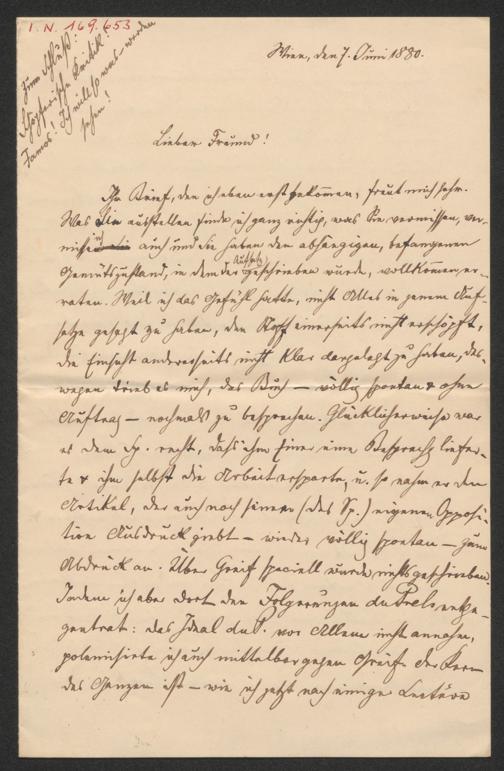 I. N. 169.653
Zum Schluß:
Schopferische Kritik!
Famos! Ich will so was werden
sehen!
Wien, den 7. Juni 1880.
Lieber Freund!
Ihr Brief, den ich eben erst bekommen, freut mich sehr.
Was Sie ausstellen finde ich ganz richtig, was Sie vermissen, ver-
misse ich auch und Sie haben den abhängigen, befangenen
Gemütszustand, in dem der Aufsatz geschrieben wurde, vollkommen er-
raten. Weil ich das Gefühl hatte, nicht Alles in jenem Auf-
satze gesagt zu haben, den Stoff einerseits nicht erschöpft,
die Einsicht andererseits nicht klar dargelegt zu haben, des-
wegen trieb es mich, das Buch – völlig spontan & ohne
Auftrag – nochmals zu besprechen. Glücklicherweise war
es dem Sp. recht, daß ihm Einer eine Besprechg liefer-
te & ihm selbst die Arbeit ersparte, u. so nahm er den
Artikel, der auch noch seiner (des Sp.) eigenen Opposi-
tion Ausdruck giebt – wieder völlig spontan – zum
Abdruck an. Über Greif speciell wurde nichts geschrieben.
Indem ich aber dort den Folgerungen du Prels entge-
gentrat: das Ideal du P. vor Allem nicht annahm,
polemisirte ich auch mittelbar gegen Greif. Der Kern
des Ganzen ist – wie ich jetzt nach einiger Lectüre